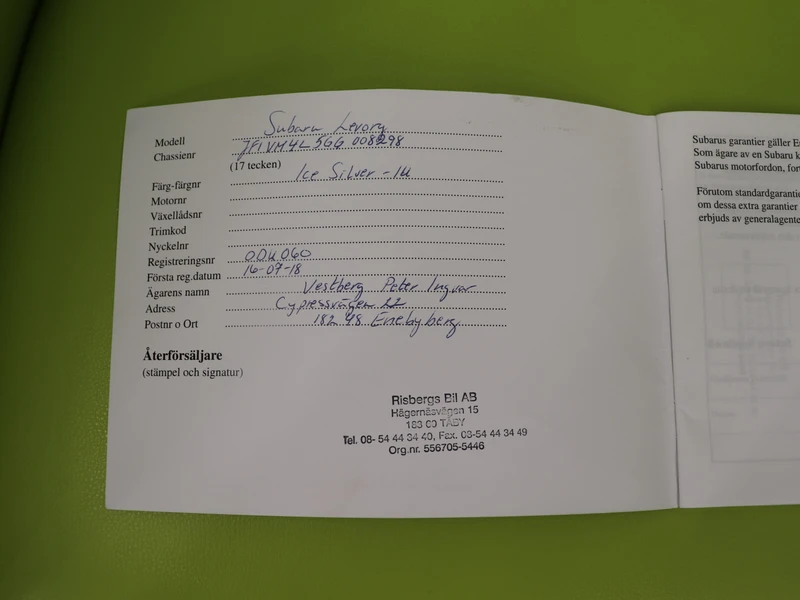 Modell Subaru Levorg
Chassienr JF1VM4L5GG 008298
(17 tecken)
Färg-färgnr Ice Silver -1U
Motornr
Växellådsnr
Trimkod
Nyckelnr
Registreringsnr OOU060
Första reg.datum 16-07-18
Ägarens namn Vestberg Peter Ingvar
Adress Cypressvägen 22
Postnr o Ort 182 48 Enebyberg
Återförsäljare
(stämpel och signatur)
Risbergs Bil AB
Hägernäsvägen 15
183 60 TÄBY
Tel. 08- 54 44 34 40, Fax. 08-54 44 34 49
Org.nr. 556705-5446
Subarus garantier gäller
Som ägare av en Subaru
Subarus motorfordon,
Förutom
om dessa extra garantier
erbjuds av